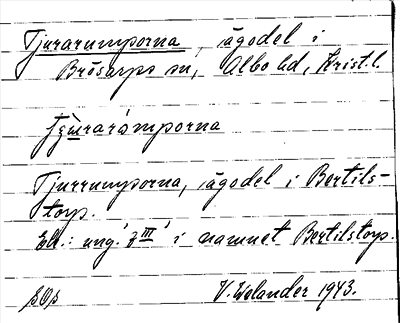 Tjurarumporna, ägodel i
Brösarps sn, Albo hd, Krist.l.
Tjurrumporna, ägodel i Bertils-
torp.
Ell.: ung. 3 III i namnet Bertilstorp.
V. Welander 1943.